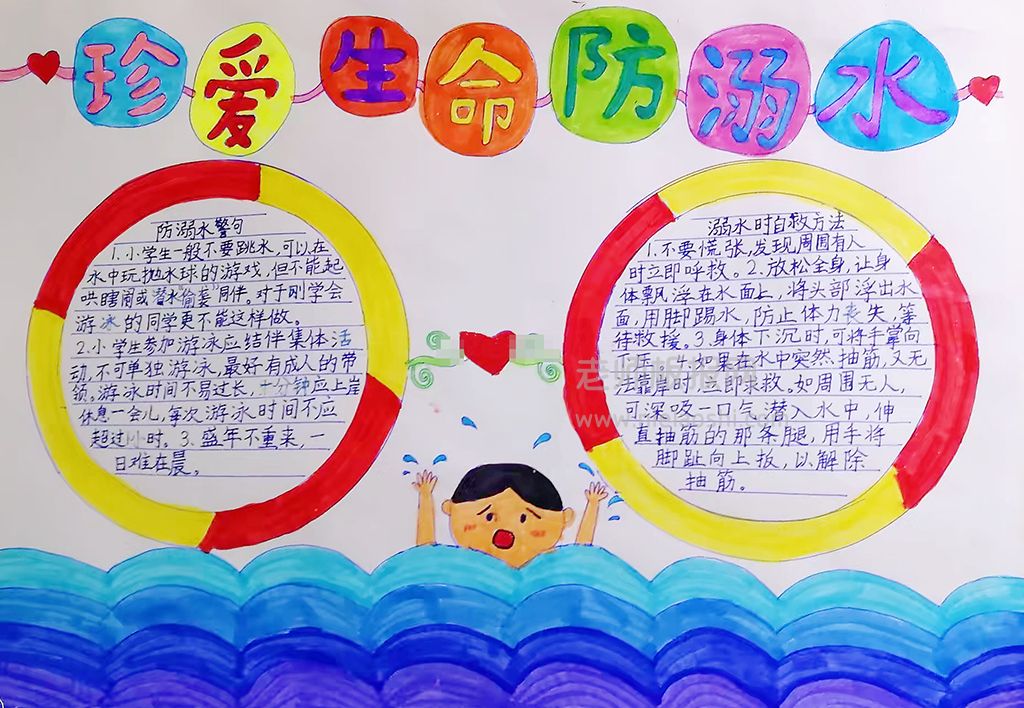 珍爱生命防溺水
防溺水警句
1.小学生一般不要跳水,可以在
水中玩抛水球的游戏,但不能起
哄瞎闹或潜水"偷袭"同伴。对于刚学会
游泳的同学更不能这样做。
2.小学生参加游泳应结伴集体活
动,不可单独游泳,最好有成人的带
领。游泳时间不易过长,十分钟应上岸
休息一会儿,每次游泳时间不应
超过小时。3.盛年不重来,一
日难在晨。
溺水时自救方法
1.不要慌张,发现周围有人
时立即呼救。2.放松全身,让身
体飘浮在水面上,将头部浮出水
面,用脚踢水,防止体力丧失,等
待救援。3.身体下沉时,可将手掌向
如果在水中突然抽筋,又无
法靠岸时,立即求救。如周围无人,
可深吸一口气潜入水中,伸
直抽筋的那条腿,用手将
脚趾向上扳,以解除
抽筋。